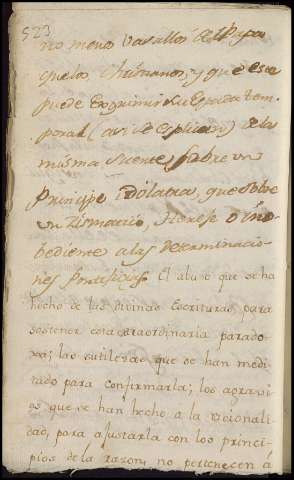 523
no menos Vasallos del Papa
que los Christianos, y que este
puede exgrimir su Espada tem
poral (asi se explican) de la
misma suerte sobre un
Principe idolatra, que sobre
un Zismatico, Herege ó ino
bediente a las determinacio
nes Pontificias. El abuso que se ha
hecho de las Divinas Escrituras para
sostener esta extraordinaria parado
xa; las sutilezas que se han medi
tado para confirmarla; los agravi
os que se han hecho a la racionali
dad, para ajustarla con los princi
pios de la razon, no pertenecen á